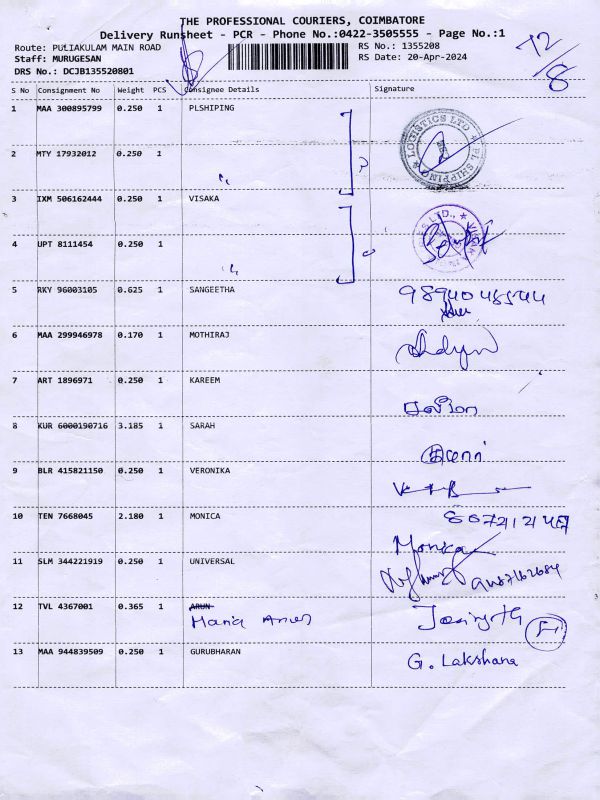 THE PROFESSIONAL COURIERS, COIMBATORE
Delivery Runsheet - PCR - Phone No.:0422-3505555 - Page No.:1
Route: PULIAKULAM MAIN ROAD RS No.: 1355208
Staff: MURUGESAN RS Date: 20-Apr-2024
DRS No.: DCJB135520801
S No Consignment No Weight PCS Consignee Details Signature
1 MAA 300895799 0.250 1 PLSHIPING
2 MTY 17932012 0.250 1
3 IXM 506162444 0.250 1 VISAKA
4 UPT 8111454 0.250 1
5 RKY 96003105 0.625 1 SANGEETHA
6 MAA 299946978 0.170 1 MOTHIRAJ
7 ART 1896971 0.250 1 KAREEM
8 KUR 6000190716 3.185 1 SARAH
9 BLR 415821150 0.250 1 VERONIKA
10 TEN 7668045 2.180 1 MONICA
Monica
11 SLM 344221919 0.250 1 UNIVERSAL
12 TVL 4367001 0.365 1 ARUN
Maria
13 MAA 944839509 0.250 1 GURUBHARAN
G. Lakshana